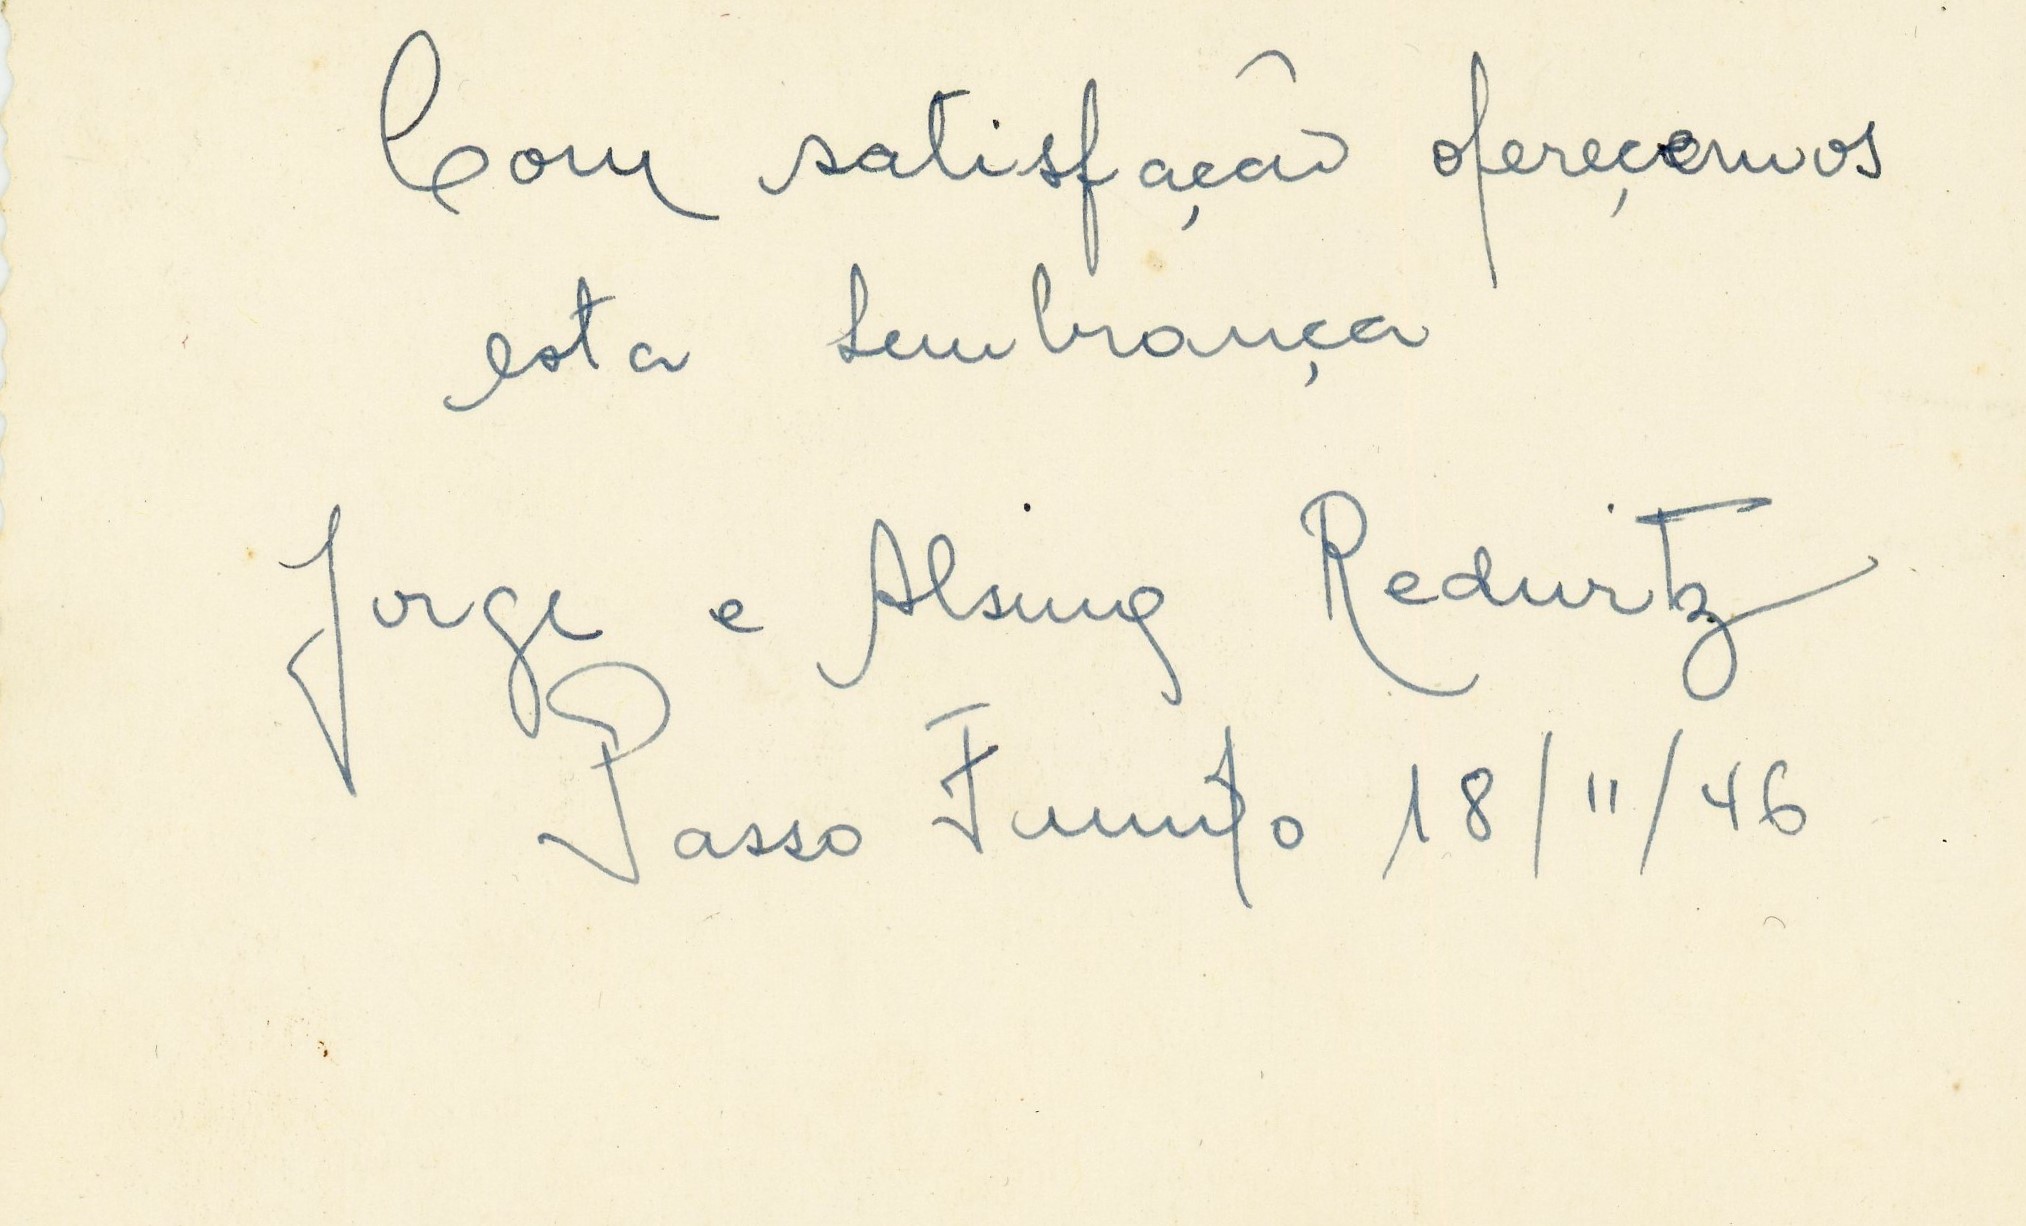 Com satisfação ofereçemos
esta lembrança
Jorge e Alsina Redwitz
Passo Fundo 18/11/46